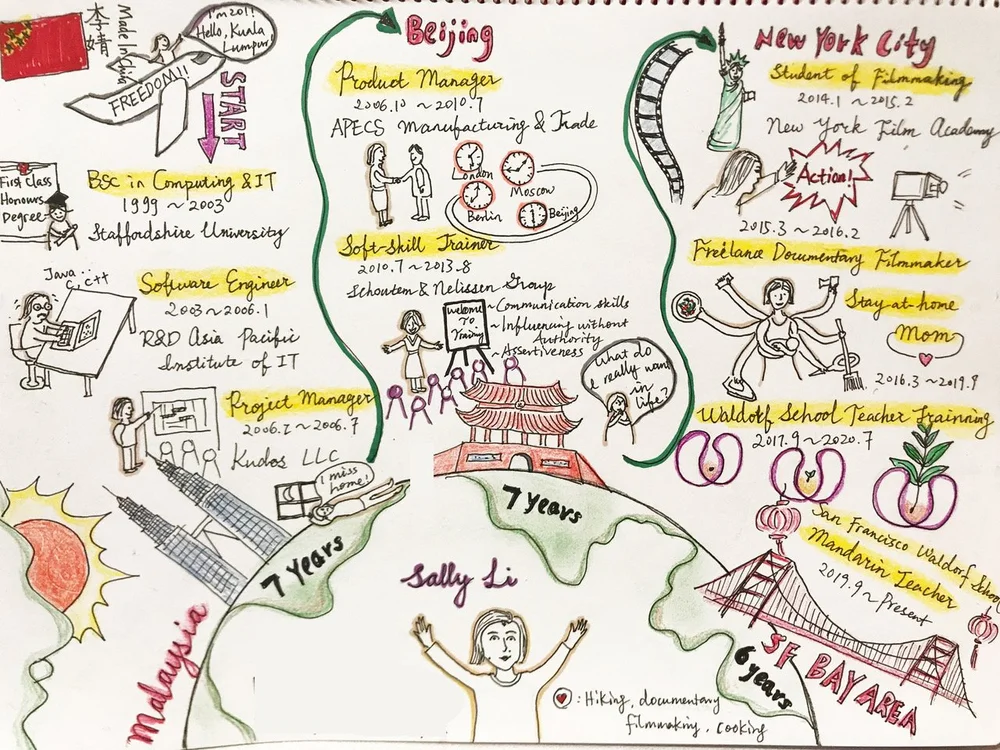 李婧
Made in China
I'm 20!!
Hello, Kuala
Lumpur
FREEDOM!!
START
First Class
Honours
Degree
BSc in Computing & IT
1999 ~ 2003
Staffordshire University
Java
C, C++
Software Engineer
2003 ~ 2006.1
R&D Asia Pacific
Institute of IT
Project Manager
2006.2 ~ 2006.7
Kudos LLC
I miss
home!
7 Years
Malaysia
Beijing
Product Manager
2006.10 ~ 2010.7
APECS Manufacturing & Trade
London
Moscow
Berlin
Beijing
Soft-Skill Trainer
2010.7 ~ 2013.8
Schoutem & Nelissen Group
Welcome
To
Training
~ Communication skills
~ Influencing without
Authority
~ Assertiveness
What do
I really want
in
life?
7 years
Sally Li
: Hiking, documentary
filmmaking, cooking
New York City
Student of Filmmaking
2014.1 ~ 2015.2
New York Film Academy
Action!
2015.3 ~ 2016.2
Freelance Documentary Filmmaker
Stay-at-home
Mom
2016.3 ~ 2019.9
Waldorf School Teacher Trainning
2017.9 ~ 2020.7
San Francisco Waldorf School
Mandarin Teacher
2019.9 ~ Present
SF BAY AREA
6 years